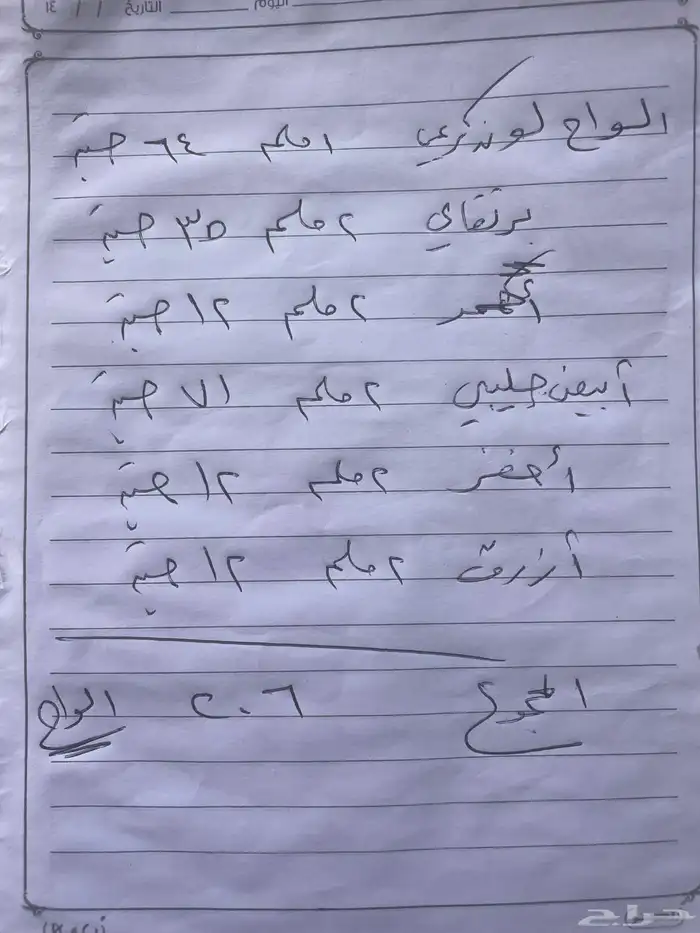 اليوم التاريخ / / ١٤
الواح لون ١ ملم ٦٤ حبة
برتقالي ٢ ملم ٣٥ حبة
أحمر ٢ ملم ١٢ حبة
أبيض حليبي ٢ ملم ٧١ حبة
أخضر ٢ ملم ١٢ حبة
أزرق ٢ ملم ١٢ حبة
المجموع ٢٠٦ الواح
حراج